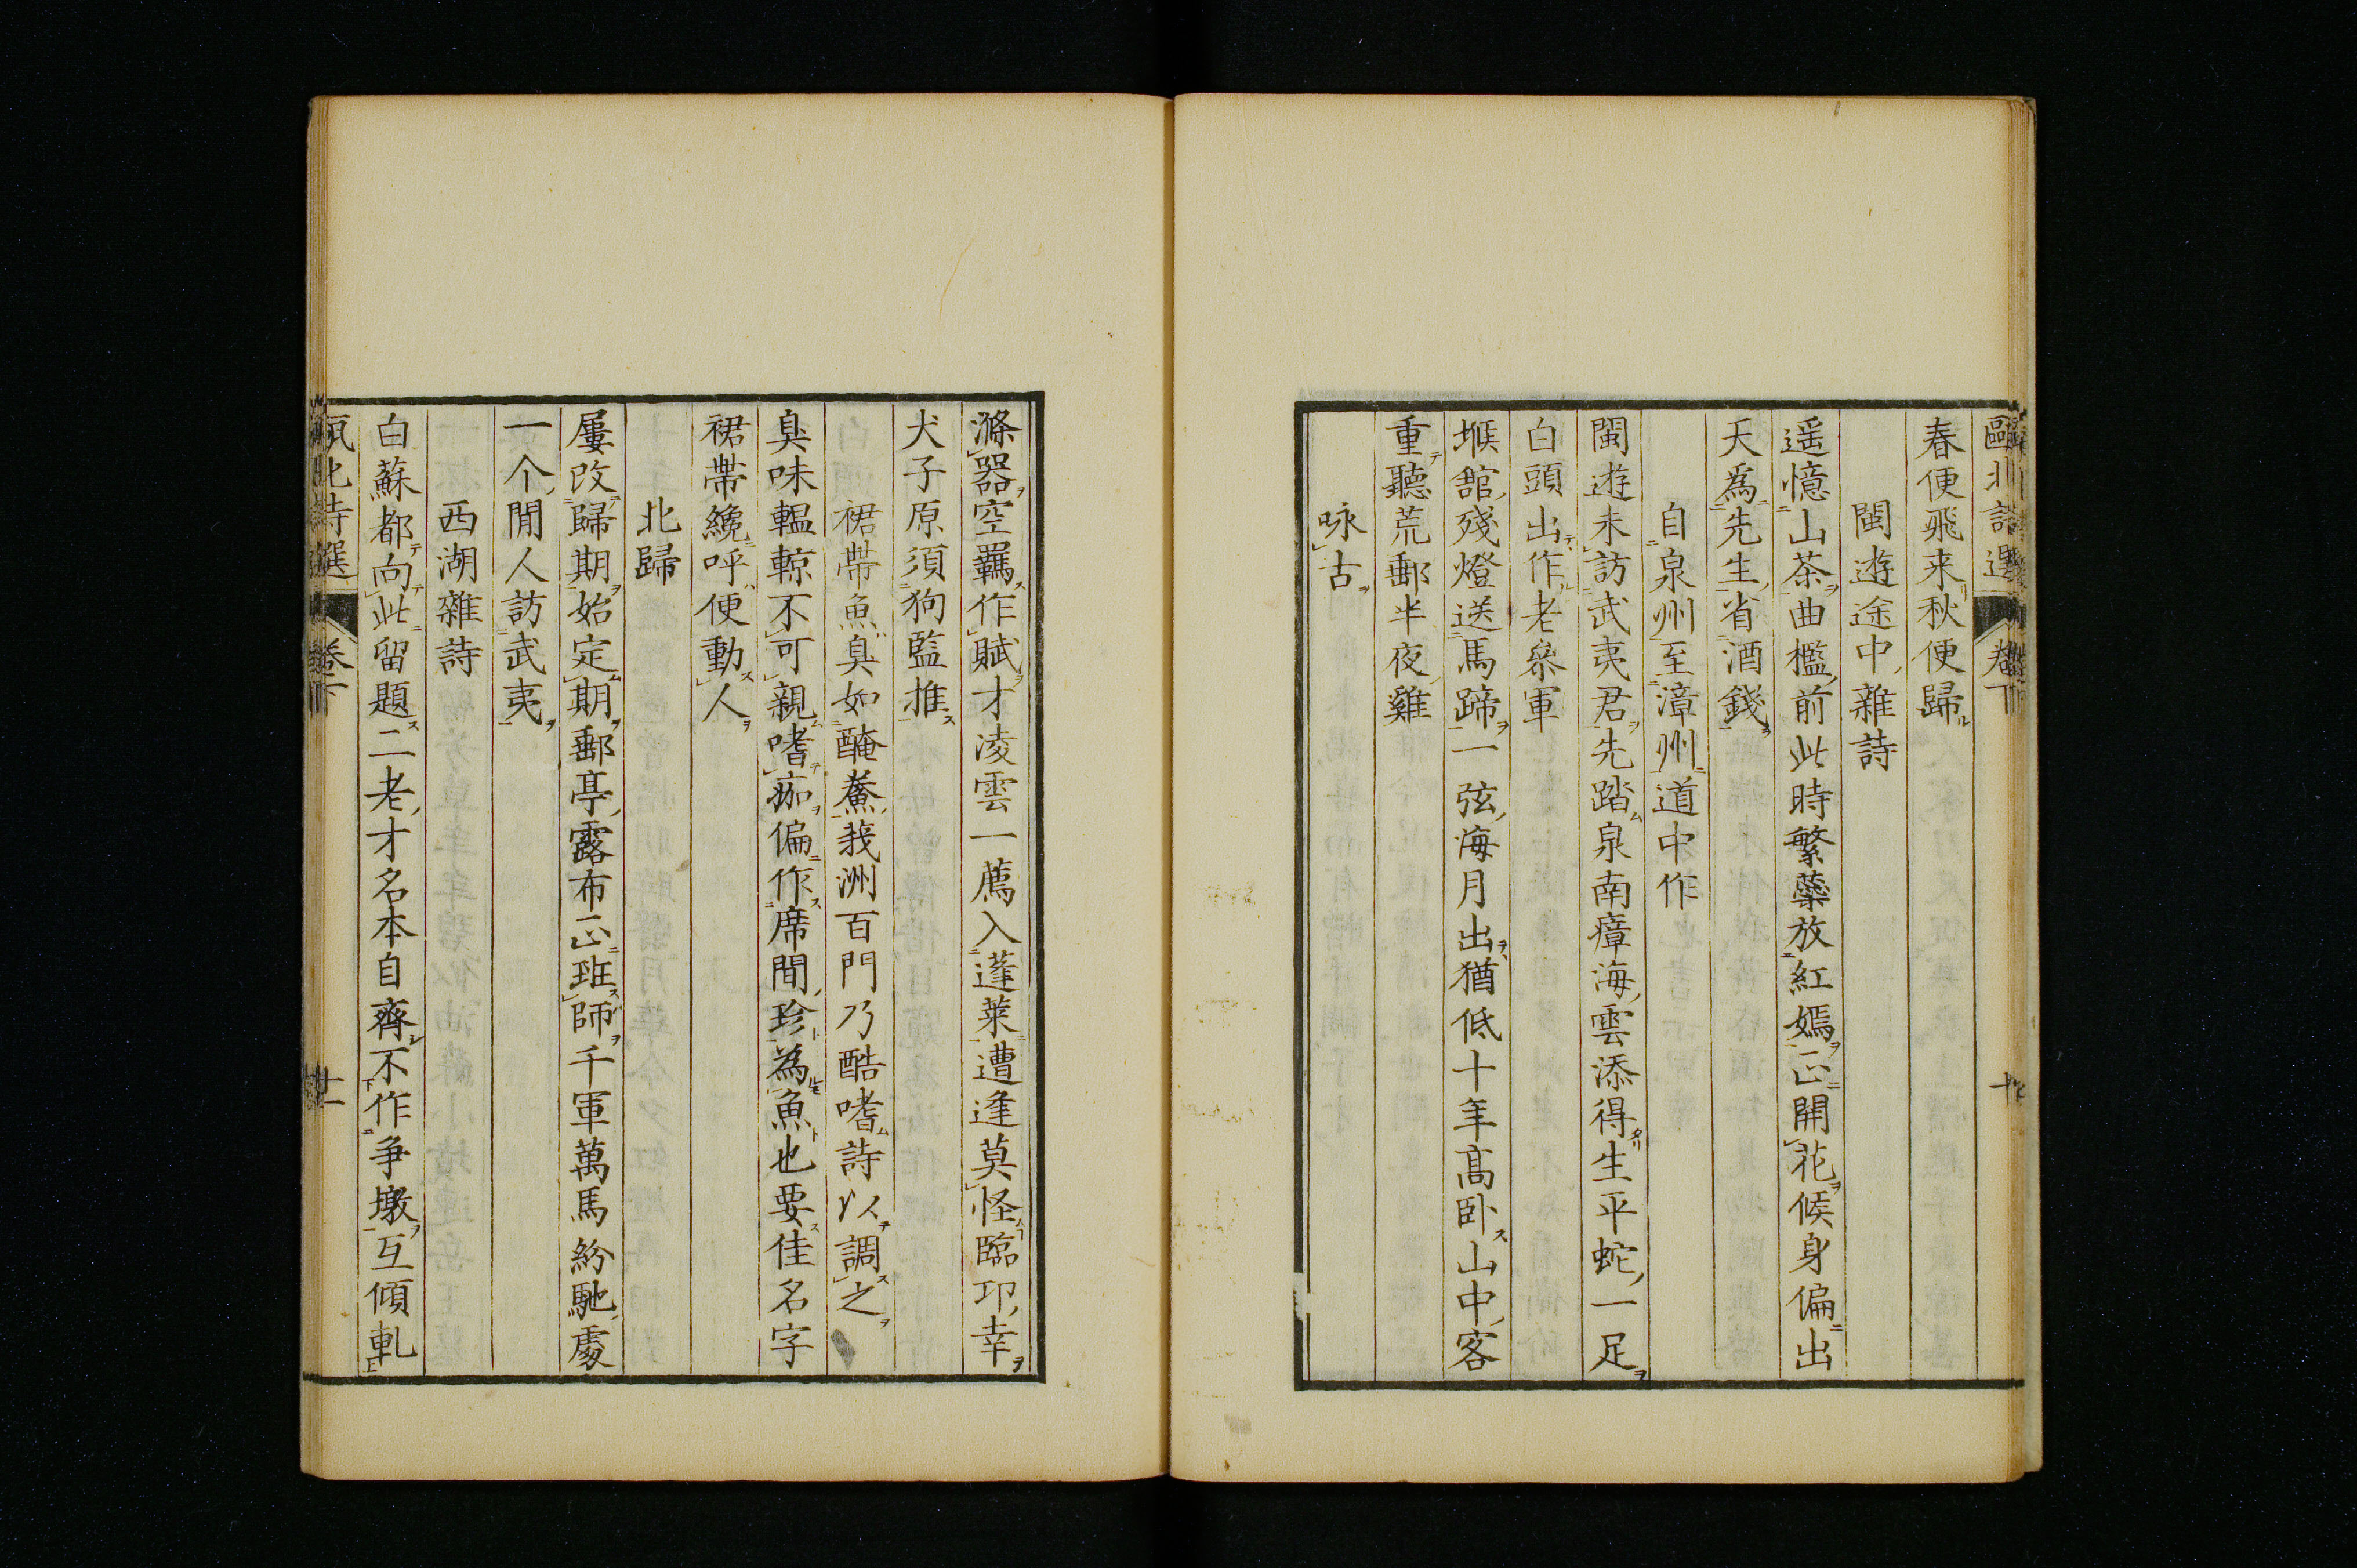 甌北詩選 卷下
春便飛来秋便歸
閩遊途中雜詩
遥憶山茶曲檻前此時繁蘂放紅嫣正開花候身偏出
天爲先生省酒錢
自泉州至漳州道中作
閩遊未訪武夷君先踏泉南瘴海雲添得生平蛇一足
白頭出作老叅軍
堠舘殘燈送馬蹄一弦海月出猶低十年髙卧山中客
重聽荒郵半夜雞
咏古
滌器空羈作賦才淩雲一薦入蓬莱遭逢莫怪臨邛幸
犬子原須狗監推
裙帶魚臭如醃鮝莪洲百門乃酷嗜詩以調之
臭味轀輬不可親嗜痂偏作席間珍為魚也要佳名字
裙帶纔呼便動人
北歸
屢改歸期始定期郵亭露布正班師千軍萬馬紛馳處
一个閒人訪武夷
西湖雜詩
白蘇都向此留題二老才名本自齊不作争墩互傾軋
甌北詩選 卷下